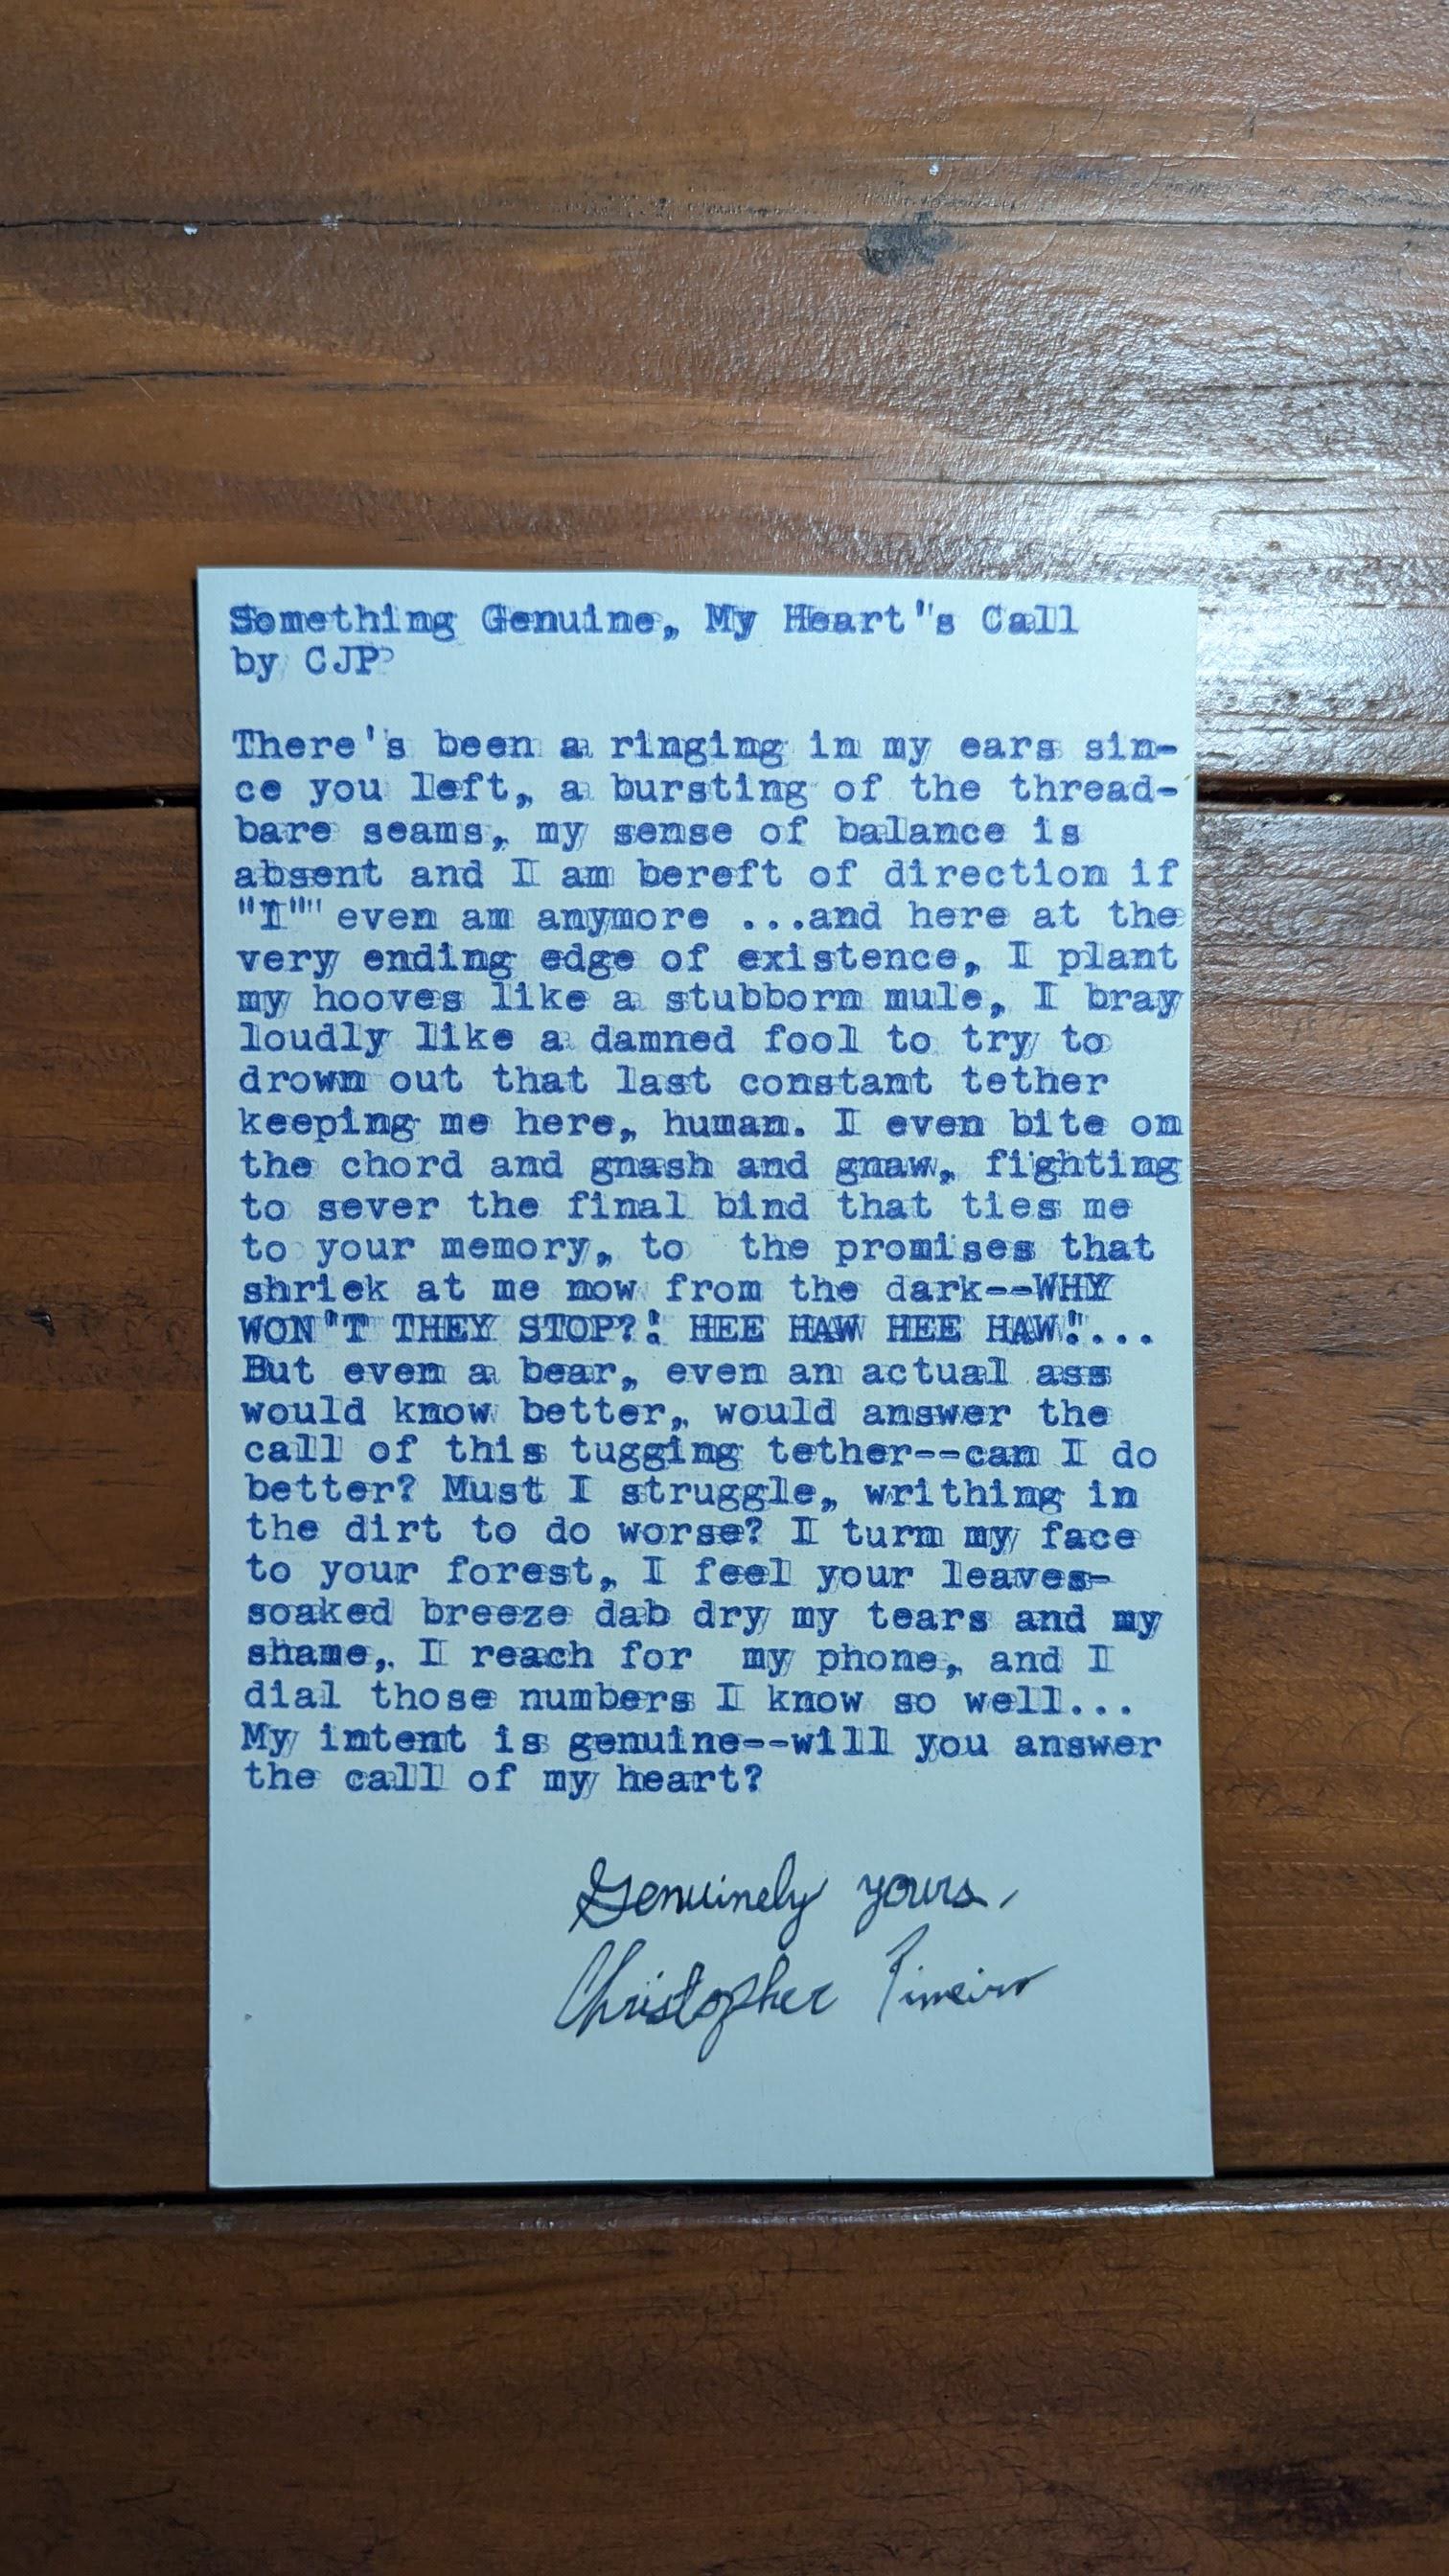 Something Genuine, My Heart"s Call
by CJP
There's been a ringing in my ears sin-
ce you left, a bursting of the thread-
bare seams, my sense of balance is
absent and I am bereft of direction if
"I"" even am anymore ...and here at the
very ending edge of existence, I plant
my hooves like a stubborn mule, I bray
loudly like a damned fool to try to
drown out that last constant tether
keeping me here, human. I even bite on
the chord and gnash and gnaw, fighting
to sever the final bind that ties me
to your memory, to  the promises that
shriek at me now from the dark--WHY
WON'T THEY STOP?! HEE HAW HEE HAW!...
But even a bear, even an actual ass
would know better, would answer the
call of this tugging tether--can I do
better? Must I struggle, writhing in
the dirt to do worse? I turn my face
to your forest, I feel your leaves-
soaked breeze dab dry my tears and my
shame, I reach for  my phone, and I
dial those numbers I know so well...
My intent is genuine--will you answer
the call of my heart?
Genuinely yours,
Christopher Pineiro